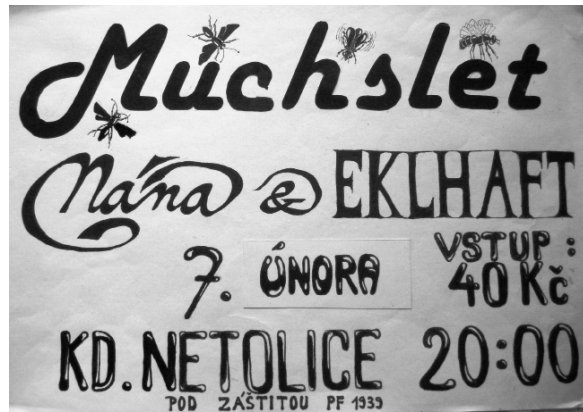 Muchslet
Nána & EKLHAFT
7. ÚNORA VSTUP: 40 Kč
KD. NETOLICE 20:00
POD ZÁŠTITOU PF 1939